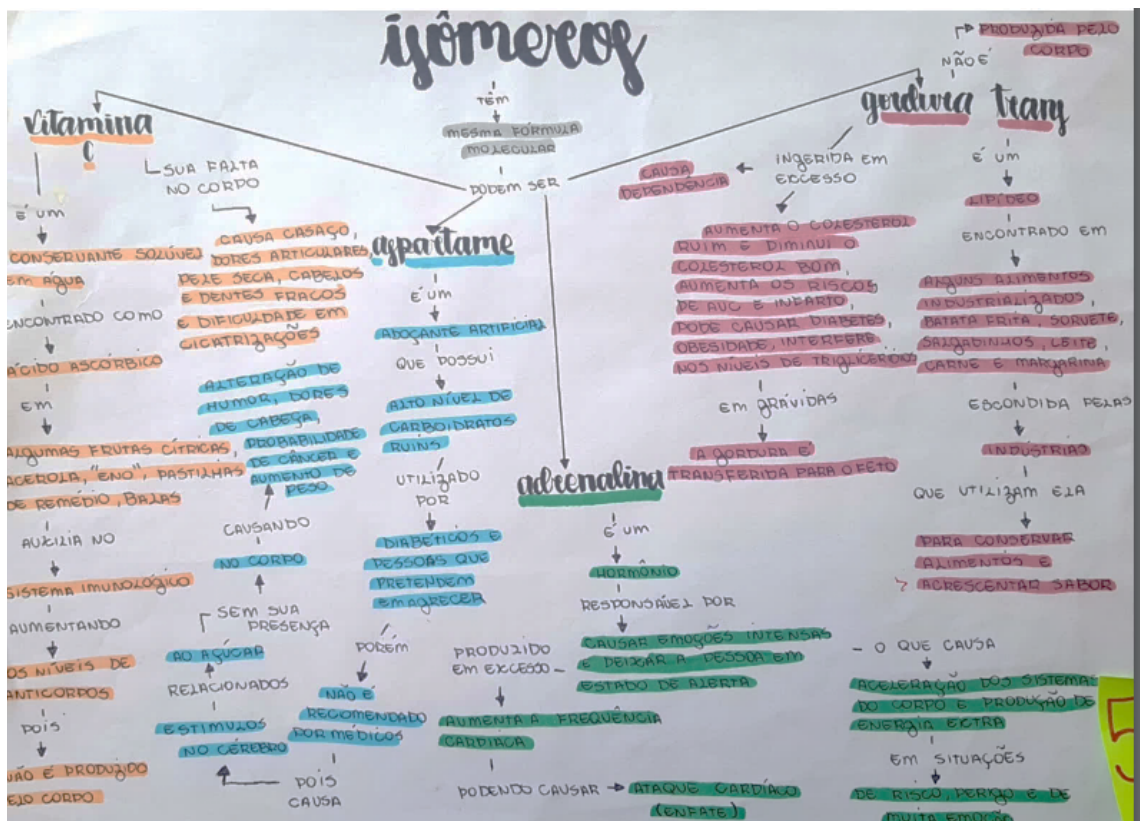 isômeros
TÊM
MESMA FÓRMULA
MOLECULAR
PODEM SER
vitamina
C
É UM
CONSERVANTE SOLÚVEL
EM ÁGUA
ENCONTRADO COMO
ÁCIDO ASCÓRBICO
EM
ALGUMAS FRUTAS CÍTRICAS,
ACEROLA, "ENO", PASTILHAS
DE REMÉDIO, BALAS
AUXILIA NO
SISTEMA IMUNOLÓGICO
AUMENTANDO
OS NÍVEIS DE
ANTICORPOS
POIS
NÃO É PRODUZIDO
PELO CORPO
SUA FALTA
NO CORPO
CAUSA CASAÇO,
DORES ARTICULARES,
PELE SECA, CABELOS
E DENTES FRACOS
E DIFICULDADE EM
CICATRIZAÇÕES
aspartame
É UM
ADOÇANTE ARTIFICIAL
QUE POSSUI
ALTO NÍVEL DE
CARBOIDRATOS
RUINS
UTILIZADO
POR
DIABÉTICOS E
PESSOAS QUE
PRETENDEM
EMAGRECER
PORÉM
NÃO É
RECOMENDADO
POR MÉDICOS
POIS
CAUSA
ESTIMULOS
NO CÉREBRO
RELACIONADOS
AO AÇÚCAR
SEM SUA
PRESENÇA
NO CORPO
CAUSANDO
ALTERAÇÃO DE
HUMOR, DORES
DE CABEÇA,
PROBABILIDADE
DE CÂNCER E
AUMENTO DE
PESO
adrenalina
É UM
HORMÔNIO
RESPONSÁVEL POR
CAUSAR EMOÇÕES INTENSAS
E DEIXAR A PESSOA EM
ESTADO DE ALERTA
PRODUZIDO
EM EXCESSO
AUMENTA A FREQUÊNCIA
CARDÍACA
PODENDO CAUSAR
ATAQUE CARDÍACO
(ENFATE)
O QUE CAUSA
ACELERAÇÃO DOS SISTEMA
DO CORPO E PRODUÇÃO DE
ENERGIA EXTRA
EM SITUAÇÕES
DE RISCO, PERIGO E DE
MUITA EMOÇÃO
gordura trans
NÃO É
PRODUZIDA PELO
CORPO
INGERIDA EM
EXCESSO
CAUSA
DEPENDÊNCIA
AUMENTA O COLESTEROL
RUIM E DIMINUI O
COLESTEROL BOM,
AUMENTA OS RISCOS
DE AVC E INFARTO,
PODE CAUSAR DIABETES,
OBESIDADE, INTERFERE
NOS NÍVEIS DE TRIGLICERÍDIOS
EM GRÁVIDAS
A GORDURA É
TRANSFERIDA PARA O FETO
É UM
LIPÍDEO
ENCONTRADO EM
ALGUNS ALIMENTOS
INDUSTRIALIZADOS,
BATATA FRITA, SORVETE,
SALGADINHOS, LEITE,
CARNE E MARGARINA
ESCONDIDA PELAS
INDÚSTRIAS
QUE UTILIZAM ELA
PARA CONSERVAR
ALIMENTOS E
ACRESCENTAR SABOR
5